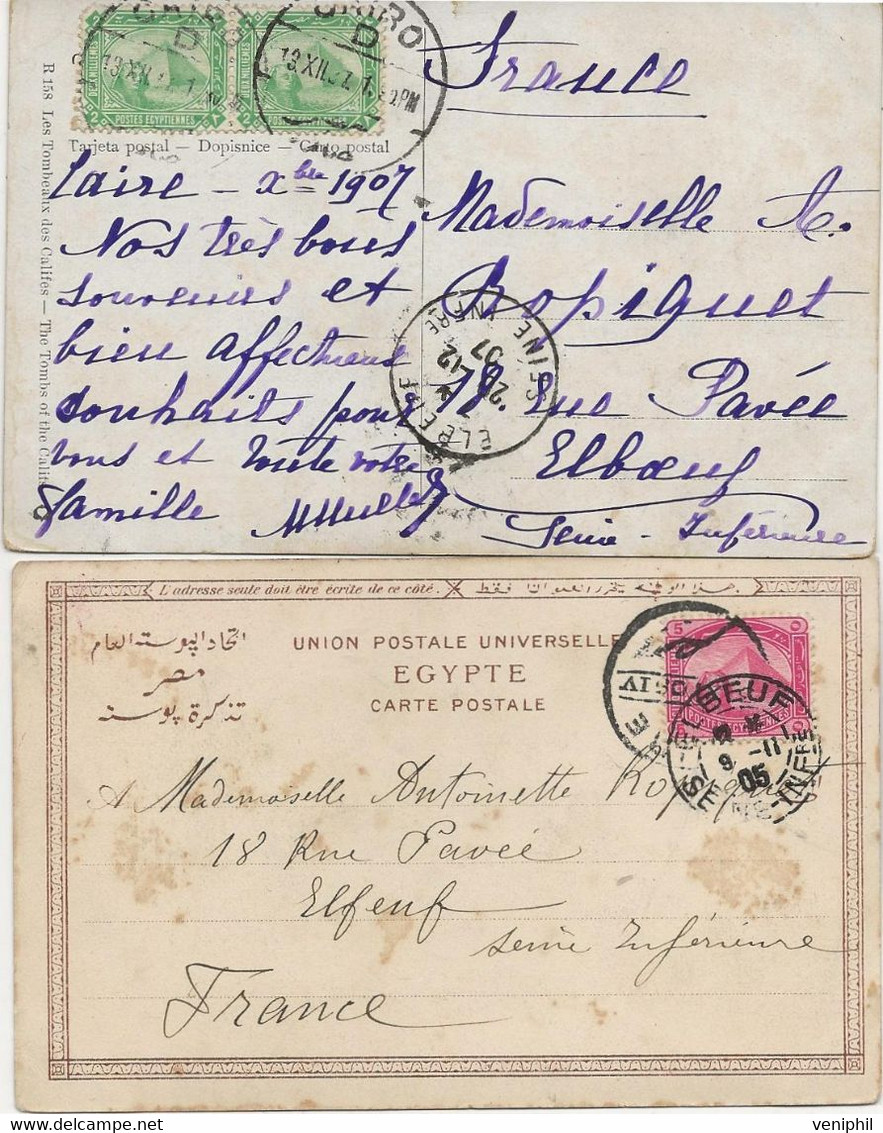 CAIRO
D
13 XII 07 1. PM
POSTES EGYPTIENNES
2
France
R 158 Les Tombeaux des Califes — The Tombs of the Califs
Tarjeta postal — Dopisnice — Carto postal
Caire — Xbre 1907
Nos très bons
souvenirs et
bien affectueux
souhaits pour
vous et toute votre
famille
Mademoiselle A.
Ropiquet
18 rue Pavée
Elboeuf
Seine-Inférieure
ELBEUF
SEINE INFRE
21-12
07
L'adresse seule doit être écrite de ce côté.
هذا الوجه يحرر العنوان فقط
اتحاد البوسته العام
مصر
تذكرة بوسته
UNION POSTALE UNIVERSELLE
EGYPTE
CARTE POSTALE
5
ELBEUF
9 -11
05
SEINE-INFRE
A Mademoselle Antoinette Ropiquet
18 Rue Pavée
Elfeuf
Seine Inférieure
France
veniphil